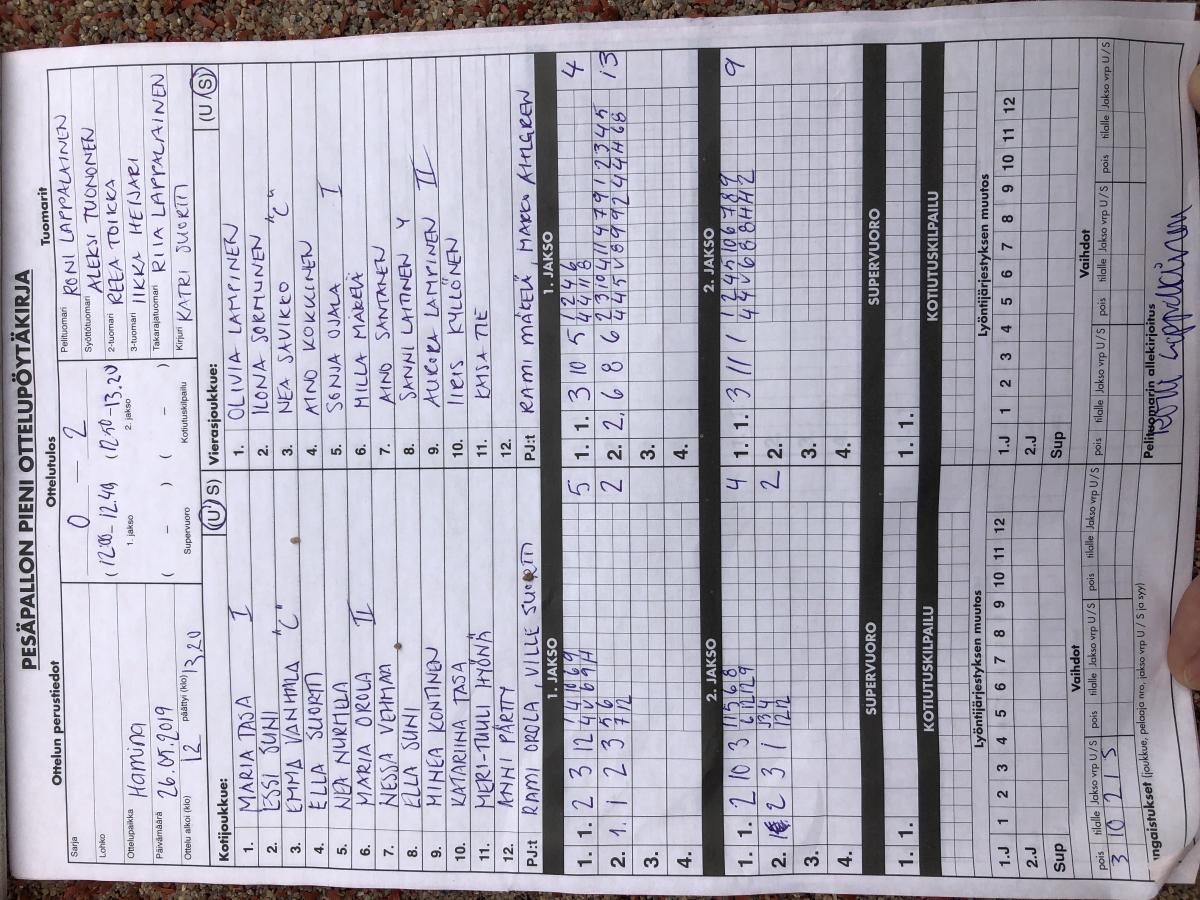 PESÄPALLON PIENI OTTELUPÖYTÄKIRJA
Ottelun perustiedot
Ottelutulos
Tuomarit
Sarja
Lohko
Ottelupaikka Hamina
Päivämäärä 26.05.2019
Ottelu alkoi (klo) 12 päättyi (klo) 13.20
0 — 2
(12.00-12.49 (12.50-13.20
1. jakso 2. jakso
( – ) ( – )
Supervuoro Kotiutuskilpailu
Pelituomari RONI LAPPALAINEN
Syöttötuomari ALEKSI TUONONEN
2-tuomari REEA TOIKKA
3-tuomari IIKKA HEIJARI
Takarajatuomari RIIA LAPPALAINEN
Kirjuri KATRI SUORTTI
Kotijoukkue: (U / S)
1. MARIA TASA I
2. ESSI SUNI
3. EMMA VANHALA "C"
4. ELLA SUORTTI
5. NEA NURMELA
6. MARIA OROLA II
7. NESSA VEHMAA
8. ELLA SUNI
9. MINEA KONTINEN
10. KATARIINA TASA
11. MERI-TUULI HYÖNIÄ
12. ANNI PÄRTTY
PJ:t RAMI OROLA VILLE SUORTTI
Vierasjoukkue: (U / S)
1. OLIVIA LAMPINEN
2. ILONA SORMUNEN
3. NEA SAVIKKO "C"
4. AINO KOKKINEN
5. SONJA OJALA I
6. MILLA MÄKELÄ
7. AINO SANTANEN
8. SANNI LAHTINEN Y
9. AURORA LAMPINEN II
10. IIRIS KYLLÖNEN
11. KAISA TIE
12.
PJ:t RAMI MÄKELÄ, MARKU AHLGREN
1. JAKSO
1. JAKSO
1. 1. 2 3 12 4 5
2. 1. 1 2 3 2
3.
4.
1. 1. 3 10 5 4
2. 2. 6 8 6 13
3.
4.
2. JAKSO
2. JAKSO
1. 1. 2 10 3 4
2. 2 3 1 2
3.
4.
1. 1. 3 11 1 9
2.
3.
4.
SUPERVUORO
SUPERVUORO
1. 1.
1. 1.
KOTIUTUSKILPAILU
KOTIUTUSKILPAILU
Lyöntijärjestyksen muutos
Lyöntijärjestyksen muutos
1.J 1 2 3 4 5 6 7 8 9 10 11 12
2.J
Sup
1.J 1 2 3 4 5 6 7 8 9 10 11 12
2.J
Sup
Vaihdot
Vaihdot
pois tilalle Jakso vrp U / S pois tilalle Jakso vrp U / S pois tilalle Jakso vrp U / S
pois tilalle Jakso vrp U / S pois tilalle Jakso vrp U / S pois tilalle Jakso vrp U / S
3 10 2 1 S
ngaistukset (joukkue, pelaaja nro, jakso vrp U / S ja syy)
Pelituomarin allekirjoitus
Roni Lappalainen